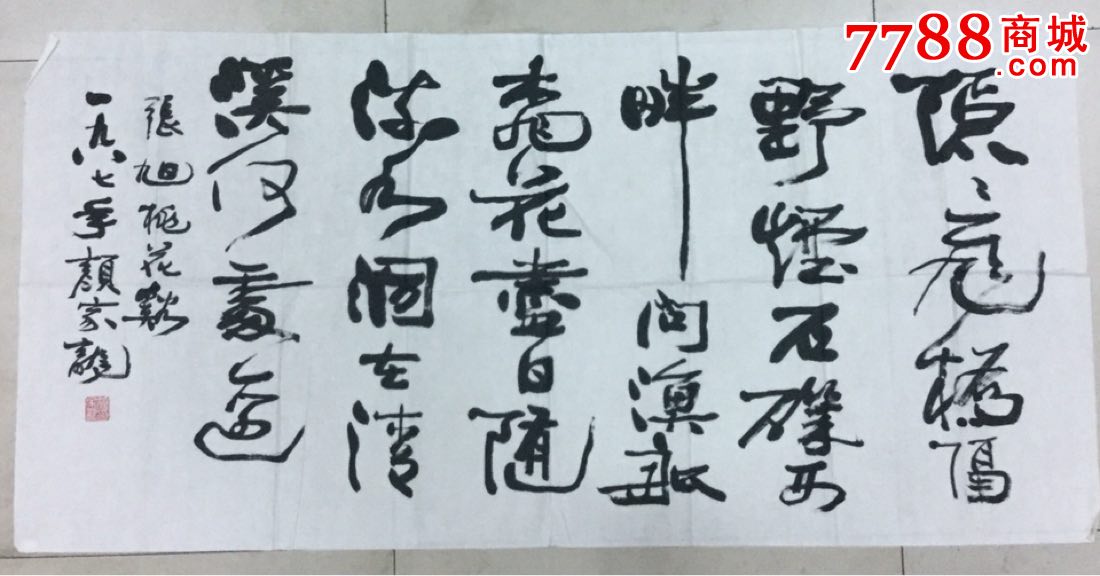 7788商城
.com
隱〻飛橋隔
野煙石磯西
畔問漁船
桃花盡日隨
流水洞在清
溪何處邊
張旭桃花谿
一九八七年顏家龍